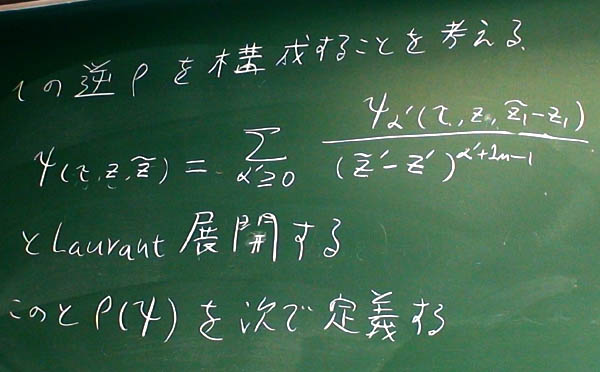 ιの逆ρを構成することを考える.
ψ(τ,z,z̃) = Σ_{α'≥0} ψ_{α'}(τ, z, z̃₁-z₁) / (z̃'-z')^{α'+1_{n-1}}
とLaurant 展開する
このとρ(ψ)を次で定義する